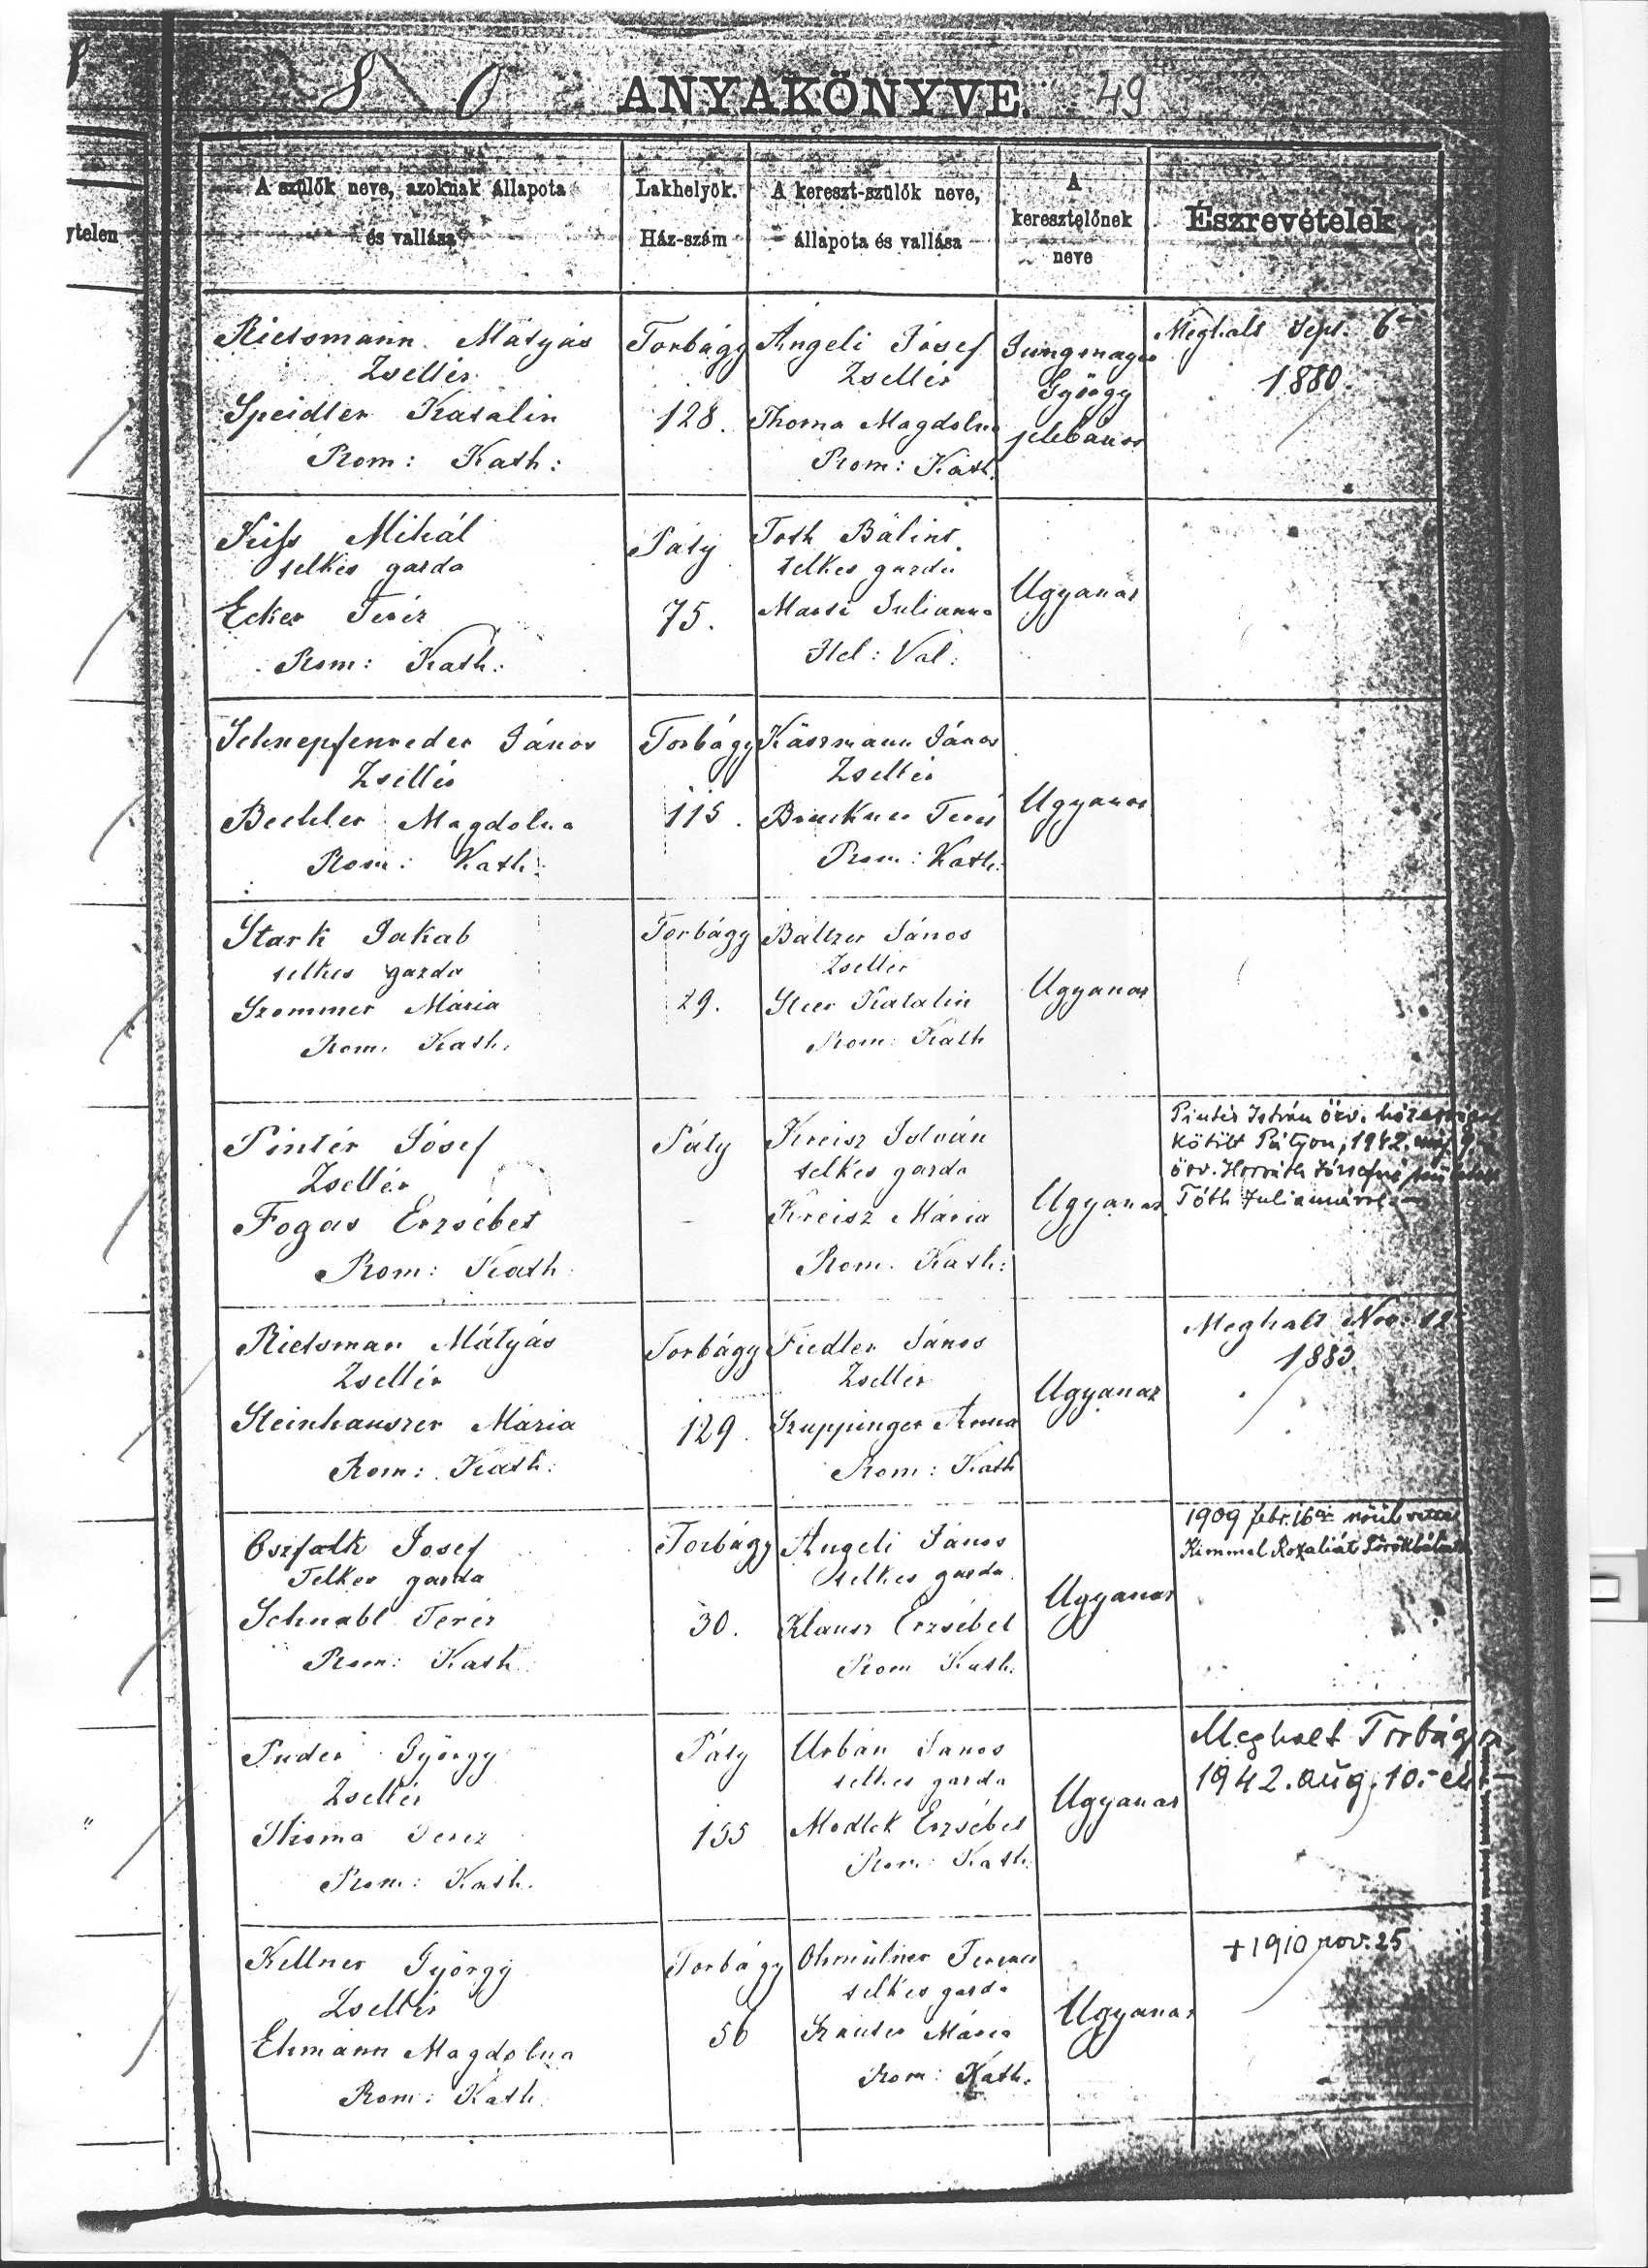 8 0 ANYAKÖNYVE. 49
ytelen
A szülők neve, azoknak állapota
és vallása
Lakhelyök.
Ház-szám
A kereszt-szülők neve,
állapota és vallása
A
keresztelőnek
neve
Észrevételek
Rietsmann Mátyás
Zsellér
Speidler Katalin
Rom: Kath:
Torbágy
128.
Angeli Jósef
Zsellér
Thoma Magdolna
Rom: Kath.
Jungmayer
György
plébános
Meghalt Sept. 6
1880.
Kiss Mihál
telkes gazda
Ecker Teréz
Rom: Kath:
Páty
75.
Toth Bálint
telkes gazda
Julianna
Hel: Val:
Ugyanaz
Schnepfenreder János
Zsellér
Bechler Magdolna
Rom: Kath:
Torbágy
115.
Kászmann János
Zsellér
Bruckner Teréz
Rom: Kath:
Ugyanaz
Stark Jakab
telkes gazda
Szommer Mária
Rom. Kath.
Torbágy
29.
Baltzer János
Zsellér
Katalin
Rom: Kath
Ugyanaz
Pintér Jósef
Zsellér
Fogas Erzsébet
Rom: Kath:
Páty
–
Kreisz István
telkes gazda
Kreisz Mária
Rom. Kath:
Ugyanaz
Pintér István özv. házasságot
kötött Pátyon, 1942.
özv. Horváth Józsefné
Tóth Juliannával
Rietsman Mátyás
Zsellér
Steinhauszer Mária
Rom: Kath:
Torbágy
129.
Fiedler János
Zsellér
Szuppinger Anna
Rom: Kath
Ugyanaz
Meghalt Nov. 12
1883
Oszfalk Josef
Telkes gazda
Schnabl Teréz
Rom: Kath
Torbágy
30.
Angeli János
telkes gazda
Klausz Erzsébet
Rom Kath.
Ugyanaz
1909 febr. 16 nőül vette
Kimmel Rozaliát Törökbálint
Puder György
Zsellér
Teréz
Rom: Kath.
Páty
155
Urbán Janos
telkes gazda
Modlek Erzsébet
Rom: Kath.
Ugyanaz
Meghalt Torbágyon
1942. aug. 10.-én
Kellner György
Zsellér
Ehmann Magdolna
Rom: Kath
Torbágy
56
Ohmülner Ferencz
telkes gazda
Mária
Rom: Kath.
Ugyanaz
+1910 nov. 25